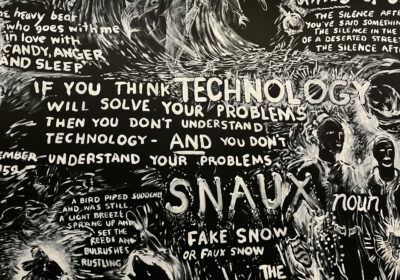 he heavy bear
who goes with me
in love with
CANDY, ANGER
AND SLEEP
THE SILENCE AFTER
YOU'VE SAID SOMETHIN
THE SILENCE IN THE
OF A DESERTED STREET
THE SILENCE AFTE
IF YOU THINK TECHNOLOGY
WILL SOLVE YOUR PROBLEMS
THEN YOU DON'T UNDERSTAND
TECHNOLOGY - AND YOU DON'T
UNDERSTAND YOUR PROBLEMS
EMBER
959
A BIRD PIPED SUDDENL
AND WAS STILL
A LIGHT BREEZE
SPRANG UP AND
SET THE
REEDS AND
BULRUSHES
RUSTLING
SNAUX noun
FAKE SNOW
OR FAUX SNOW
THE